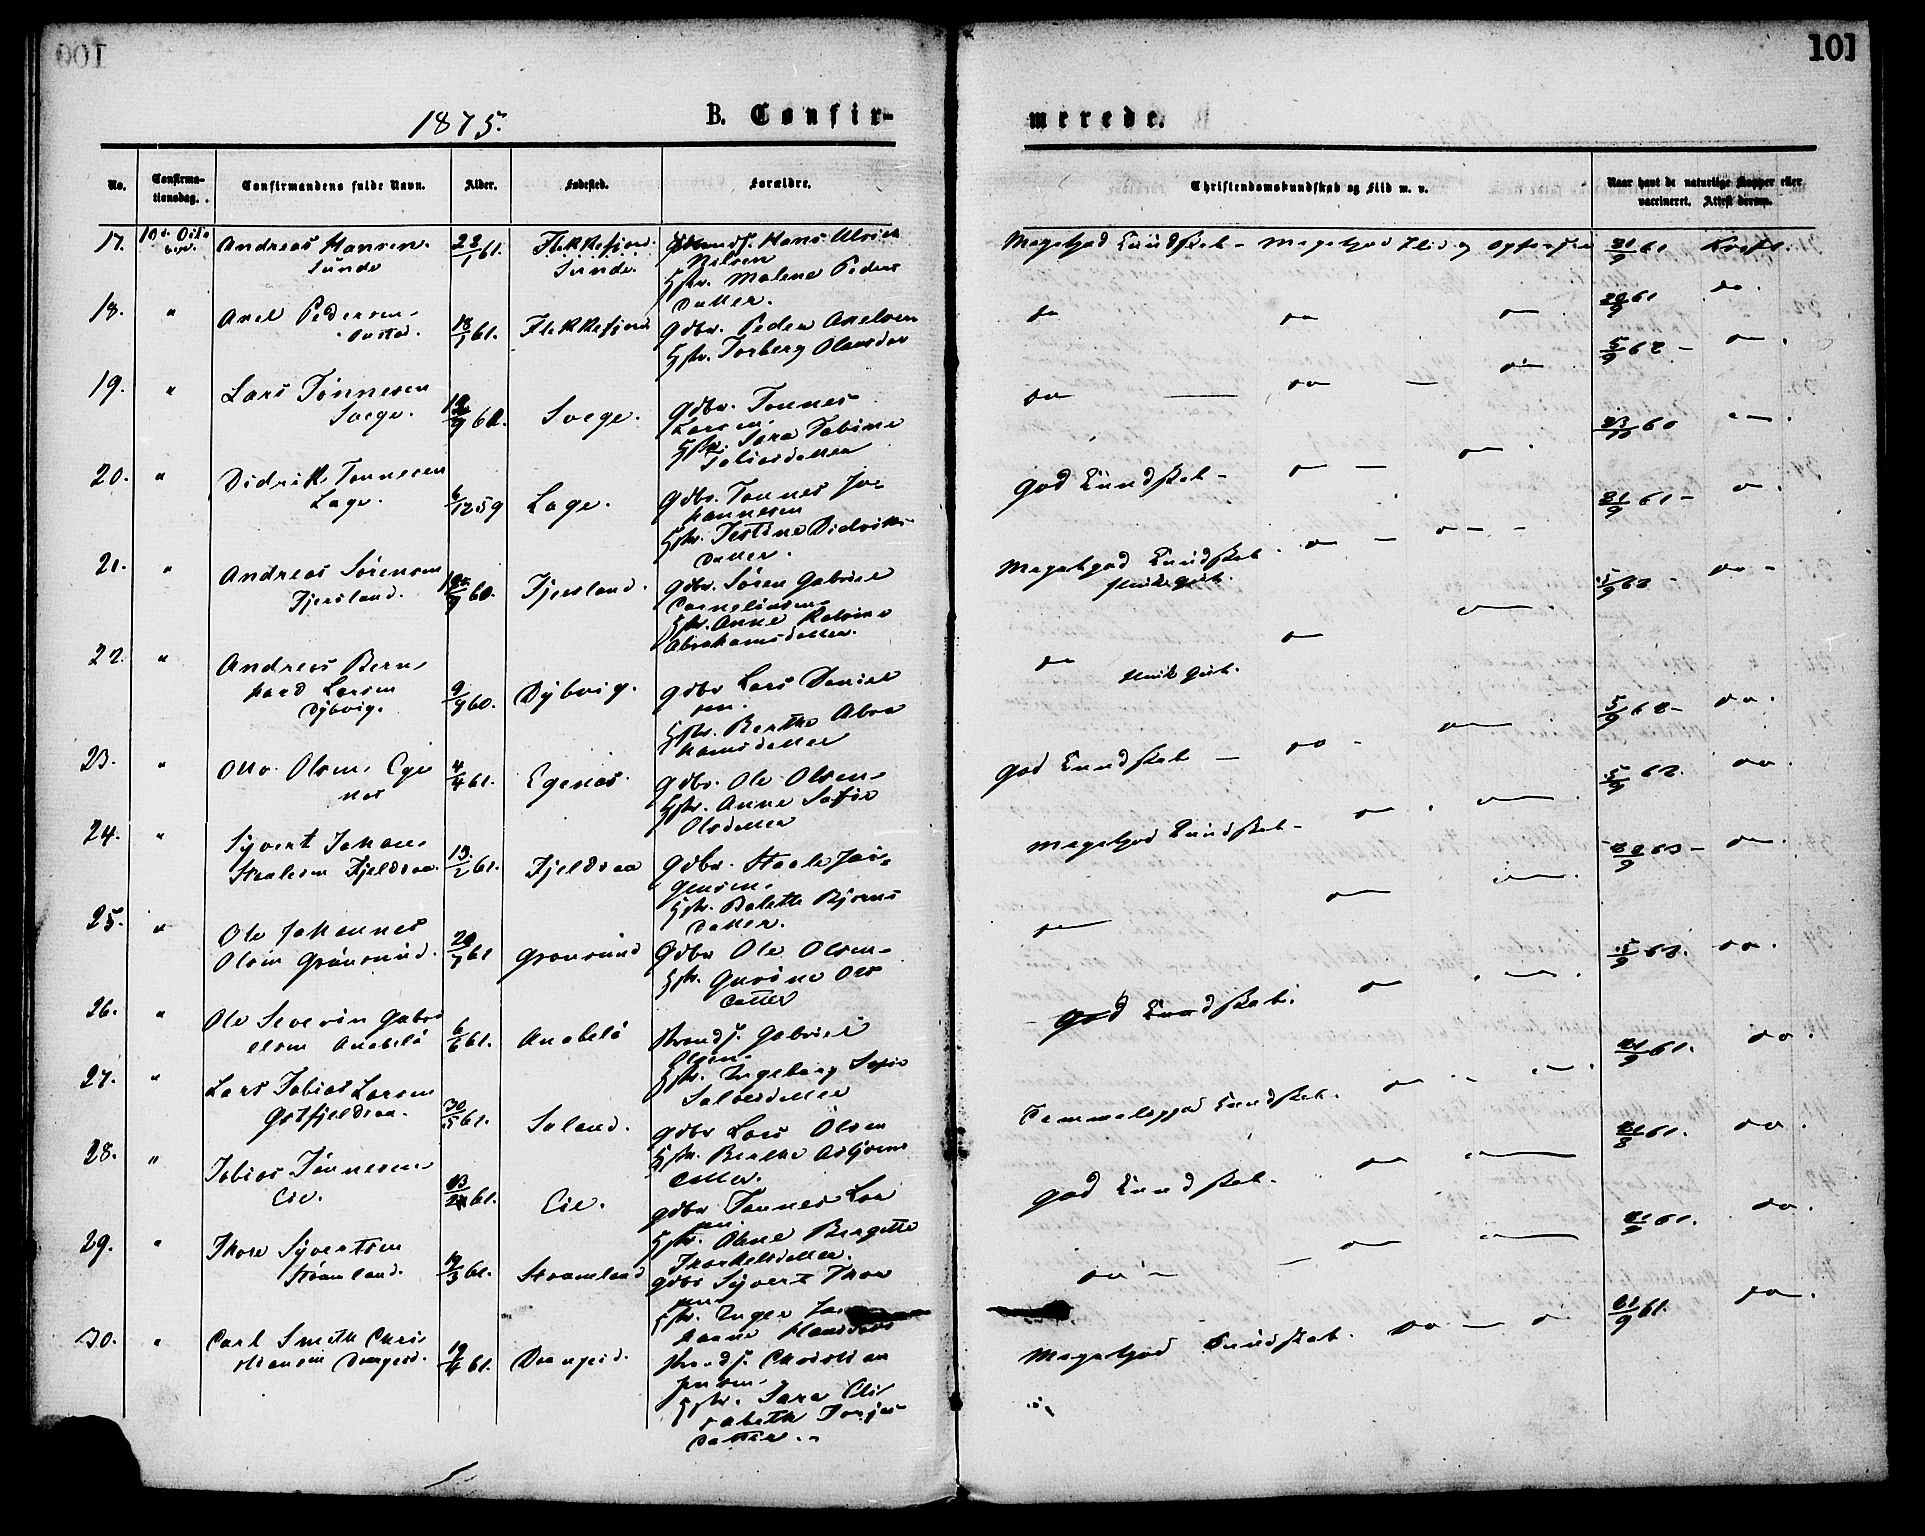 101
1875.
B. Confir-
merede.
No.
Confirma-
tionsdag.
Confirmandens fulde Navn.
Alder.
Fødested.
Forældre.
Christendomskundskab og Flid m. v.
Naar havt de naturlige Kopper eller
vaccineret. Attest derom.
17.
Andreas Hansen
Sunde
22/1 61.
Flekkefjord.
Sunde.
Hans Ulrich
Nilsen
Malene Peders
Datter.
Megetgod Kundskab - megetgod Flid og
21/9 61
18.
"
Axel Pedersen
18/1 61.
Flekkefjord
Gdbr. Peder Axelsen
Torborg Olausdat
do
do
do
29/9 61
do.
19.
"
Lars Tønnesen
Svege.
60.
Svege.
Gdbr. Tønnes
Larsen.
Sara Tobine
Tobiasdatter
do
do
do
5/9 62 -
do.
20.
"
Didrik Tønnesen
Lage.
6/12 59
Lage.
Gdbr. Tønnes Jo-
hannesen
Justine Didriks-
datter.
god Kundskab -
do -
do
60
do
21.
"
Andreas Sørensen
Fjersland.
60.
Fjersland.
Gdbr. Søren Gabriel
Corneliusen
Anne Malene
Abrahamsdatter.
Megetgod Kundskab.
do -
do -
21/9 61 -
do.
22.
"
Andreas Bern-
hard Larsen
Dybvig.
9/9 60.
Dybvig.
Gdbr. Lars Daniel
sen.
Berthe Abra
hamsdatter
do
do
do
do -
23.
"
Otto Olsen Ege
nes
4/4 61.
Egenes.
Gdbr. Ole Olsen
Anne Sofie
Olsdatter
God Kundskab -
do -
do
5/9 62 -
do.
24.
"
Syvert Johan
Staalesen Fjeldsaa.
13/2 61.
Fjeldsaa
Gdbr. Staale Jør-
gensen.
Bolette Bjørns
datter.
Megetgod Kundskab -
do
do
5/9 62.
do.
25.
"
Ole Johannes
Olsen Grønsund.
61
Grønsund
Gdbr Ole Olsen
Gurine Ols
datter
do
do
do
63 -
do.
26.
"
Ole Severin Gabri
elsen Anabelø
6/6 61.
Anabelø
Strands. Gabriel
Olsen.
Ingeborg Sofie
Salvesdatter
god Kundskab.
do
do
5/9 63.
do.
27.
"
Lars Tobias Larsen
Østfjeldsaa.
30/5 61.
Soland.
Gdbr Lars Olsen
Berthe Asbjørns
datter.
Temmeliggod Kundskab.
do
do
21/9 61.
do.
28.
"
Tobias Tønnesen
Eie.
61.
Eie.
Gdbr Tønnes Lar
sen.
Anne Bergitte
Thorkelsdatter.
god Kundskab.
do
do
21/8 61.
do.
29.
"
Thore Syvertsen
Strømland.
12/3 61.
Strømland
Gdbr Syvert Thor
sen
Inger Jo
hanne Hansdat
do -
do
do
21/9 61.
do.
30.
"
Carl Smith Chris
tiansen Drangeid.
19/4 61.
Drangeid.
Strands. Christian
Jensen.
Sara Eli
sabeth Torjus
datter.
Megetgod Kundskab.
do -
do
21/9 61.
do.